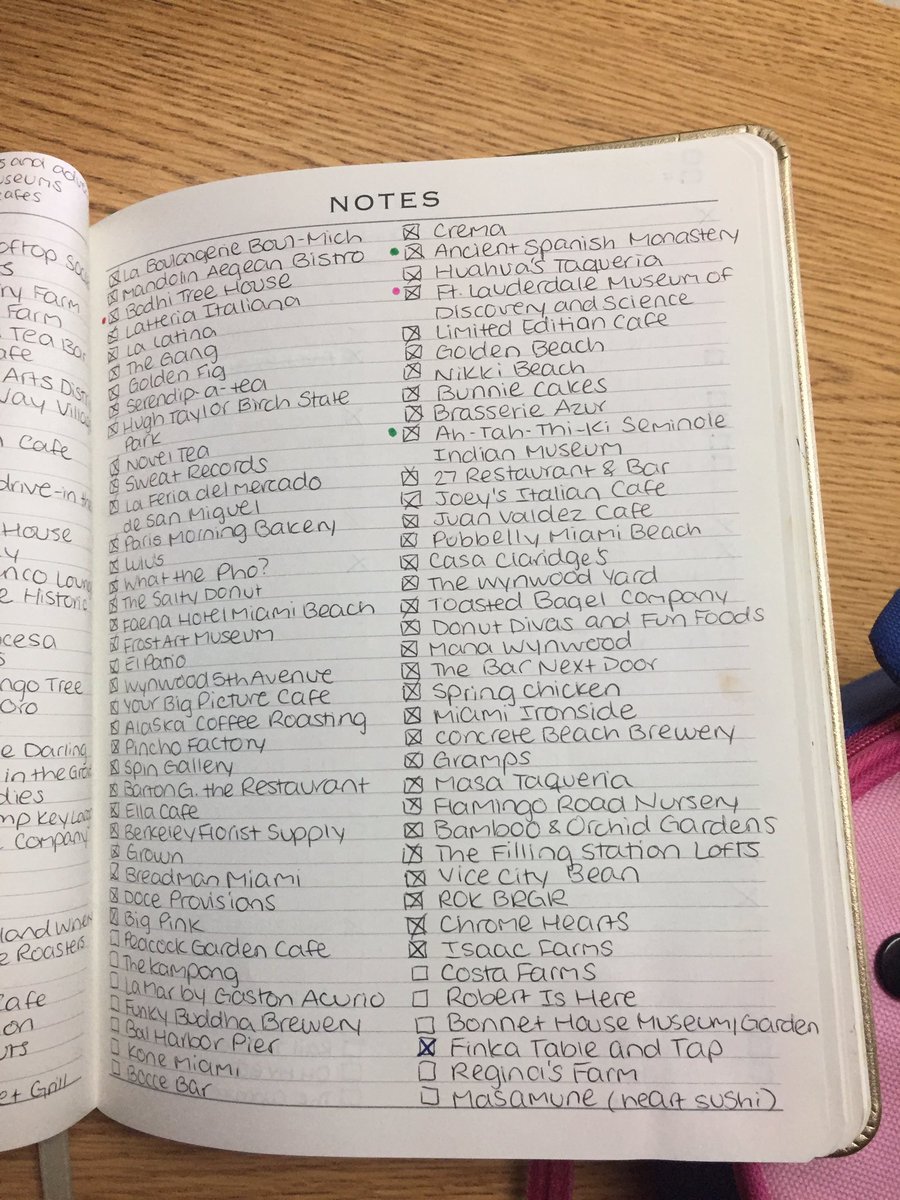 s and adv
useums
cafes
oftop
ry Farm
Farm
Tea Bar
afe
Arts Dist
Way Villa
Cafe
drive-in th
House
y
nco Loun
e Historic
cesa
s
ngo Tree
oro
e Darling
in the Gro
dies
mp Key La
Company
land Wine
e Roasters
Cafe
on
urs
et Grill
NOTES
La Boulangerie Boul-Mich
Mandolin Aegean Bistro
Bodhi Tree House
Latteria Italiana
La Latina
The Gang
Golden Fig
Serendip-a-tea
Hugh Taylor Birch State
Park
Novel Tea
Sweat Records
La Feria del Mercado
de San Miguel
Paris Morning Bakery
Lulu's
What the Pho?
The Salty Donut
Faena Hotel Miami Beach
Frost Art Museum
El Patio
Wynwood 5th Avenue
Your Big Picture Cafe
Alaska Coffee Roasting
Pincho Factory
Spin Gallery
Barton G. the Restaurant
Ella Cafe
Berkeley Florist Supply
Grown
Breadman Miami
Doce Provisions
Big Pink
Peacock Garden Cafe
The Kampong
La Mar by Gaston Acurio
Funky Buddha Brewery
Bal Harbor Pier
Kone Miami
Bocce Bar
Crema
Ancient Spanish Monastery
Huahua's Taqueria
Ft. Lauderdale Museum of
Discovery and Science
Limited Edition Cafe
Golden Beach
Nikki Beach
Bunnie Cakes
Brasserie Azur
Ah-Tah-Thi-Ki Seminole
Indian Museum
27 Restaurant & Bar
Joey's Italian Cafe
Juan Valdez Cafe
Pubbelly Miami Beach
Casa Claridge's
The Wynwood Yard
Toasted Bagel Company
Donut Divas and Fun Foods
Mana Wynwood
The Bar Next Door
Spring Chicken
Miami Ironside
Concrete Beach Brewery
Gramps
Masa Taqueria
Flamingo Road Nursery
Bamboo & Orchid Gardens
The Filling Station Lofts
Vice City Bean
ROK BRGR
Chrome Hearts
Isaac Farms
Costa Farms
Robert Is Here
Bonnet House Museum/Garden
Finka Table and Tap
Regina's Farm
Masamune (heart sushi)